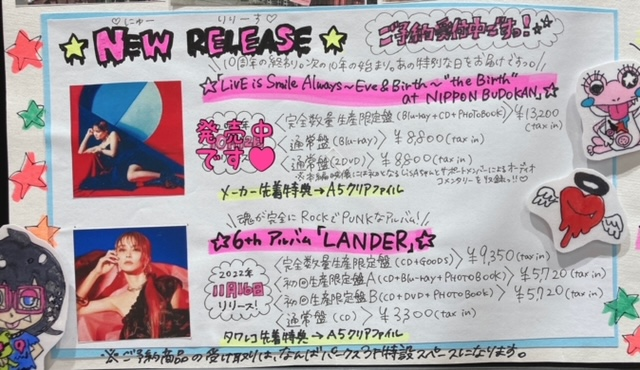 にゅー りりーす
NEW RELEASE
ご予約受付中でっす!
10周年の終わり。次の10年の始まり。あの特別な日をお届けでっす
☆「LiVE is Smile Always～Eve&Birth～"the Birth"
at NIPPON BUDOKAN」☆
発売中です♡
<完全数量生産限定盤(Blu-ray+CD+PHOTOBOOK)>¥13,200(tax in)
<通常盤(Blu-ray)>¥8,800(tax in)
<通常盤(2DVD)>¥8,800(tax in)
コメンタリーを収録っ!!♡
メーカー先着特典→A5クリアファイル
魂が完全にRockでPUNKなアルバム!
☆6thアルバム「LANDER」☆
2022年
11月16日
リリース!
<完全数量生産限定盤(CD+GOODS)>¥9,350(tax in)
<初回生産限定盤A(CD+Blu-ray+PHOTOBOOK)>¥5,720(tax in)
<初回生産限定盤B(CD+DVD+PHOTOBOOK)>¥5,720(tax in)
<通常盤(CD)>¥3,300(tax in)
タワレコ先着特典→A5クリアファイル
※ご予約商品の受け取りは、なんばパークス3F特設スペースになります。